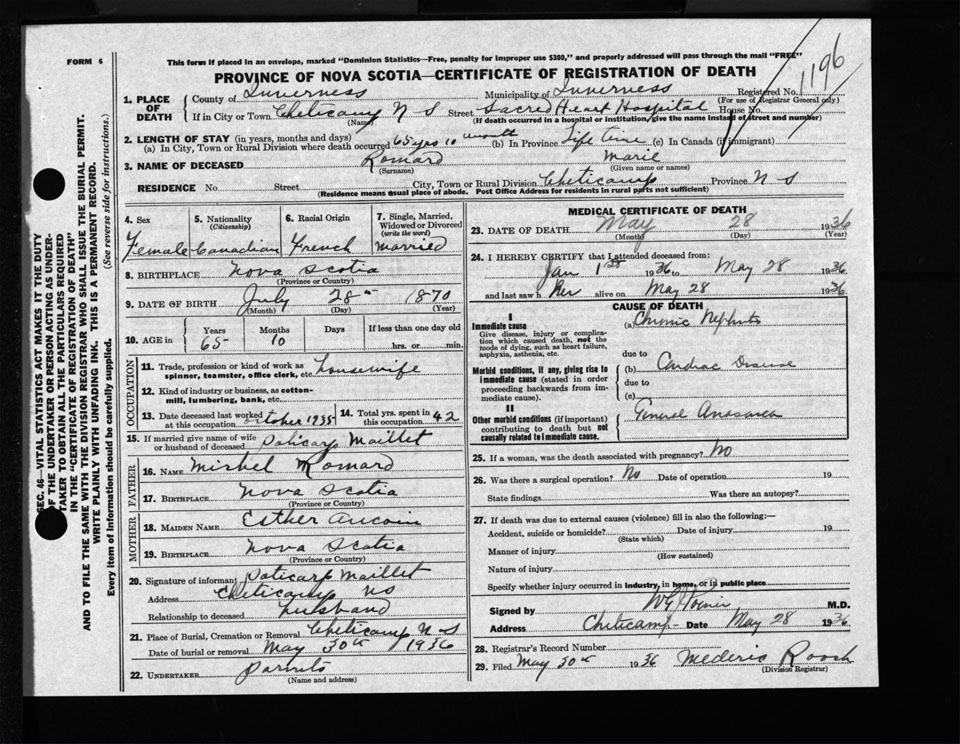 FORM 6
This form if placed in an envelope, marked "Dominion Statistics—Free, penalty for improper use $300," and properly addressed will pass through the mail "FREE"
PROVINCE OF NOVA SCOTIA—CERTIFICATE OF REGISTRATION OF DEATH
1196
1. PLACE OF DEATH
County of Inverness Municipality of Inverness Registered No.
(For use of Registrar General only)
If in City or Town Cheticamp N S Street Sacred Heart Hospital House No.
(Name) (If death occurred in a hospital or institution, give the name instead of street and number)
2. LENGTH OF STAY (in years, months and days)
(a) In City, Town or Rural Division where death occurred 65 yrs 10 month (b) In Province Life time (c) In Canada (if immigrant)
3. NAME OF DECEASED Romard Marie
(Surname) (Given name or names)
RESIDENCE No. Street City, Town or Rural Division Cheticamp Province N S
(Residence means usual place of abode. Post Office Address for residents in rural parts not sufficient)
SEC. 46—VITAL STATISTICS ACT MAKES IT THE DUTY
OF THE UNDERTAKER OR PERSON ACTING AS UNDER-
TAKER TO OBTAIN ALL THE PARTICULARS REQUIRED
IN THE "CERTIFICATE OF REGISTRATION OF DEATH"
AND TO FILE THE SAME WITH THE DIVISION REGISTRAR WHO SHALL ISSUE THE BURIAL PERMIT.
WRITE PLAINLY WITH UNFADING INK. THIS IS A PERMANENT RECORD.
Every item of information should be carefully supplied. (See reverse side for instructions.)
4. Sex 5. Nationality (Citizenship) 6. Racial Origin 7. Single, Married, Widowed or Divorced (write the word)
Female Canadian French married
8. BIRTHPLACE Nova Scotia
(Province or Country)
9. DATE OF BIRTH July 28th 1870
(Month) (Day) (Year)
10. AGE in Years Months Days If less than one day old
65 10 hrs. or min.
OCCUPATION
11. Trade, profession or kind of work as spinner, teamster, office clerk, etc. housewife
12. Kind of industry or business, as cotton-mill, lumbering, bank, etc.
13. Date deceased last worked at this occupation October 1935 14. Total yrs. spent in this occupation 42
15. If married give name of wife or husband of deceased Policarp Maillet
FATHER
16. NAME Mishel Romard
17. BIRTHPLACE Nova Scotia
(Province or Country)
MOTHER
18. MAIDEN NAME Esther Aucoin
19. BIRTHPLACE Nova Scotia
(Province or Country)
20. Signature of informant Policarp Maillet
Address Cheticamp NS
Relationship to deceased husband
21. Place of Burial, Cremation or Removal Cheticamp N S
Date of burial or removal May 30th 1936
22. UNDERTAKER
(Name and address)
MEDICAL CERTIFICATE OF DEATH
23. DATE OF DEATH May 28 1936
(Month) (Day) (Year)
24. I HEREBY CERTIFY that I attended deceased from:
Jan 1st 1936 to May 28 1936
and last saw her alive on May 28 1936
CAUSE OF DEATH
I
Immediate cause
Give disease, injury or complication which caused death, not the mode of dying, such as heart failure, asphyxia, asthenia, etc.
(a) Chronic Nephritis
due to
Morbid conditions, if any, giving rise to immediate cause (stated in order proceeding backwards from immediate cause).
(b) Cardiac Disease
due to
(c)
II
Other morbid conditions (if important) contributing to death but not causally related to immediate cause.
General Anasarca
25. If a woman, was the death associated with pregnancy? No
26. Was there a surgical operation? No Date of operation 19
State findings Was there an autopsy?
27. If death was due to external causes (violence) fill in also the following:—
Accident, suicide or homicide? Date of injury 19
(State which)
Manner of injury
(How sustained)
Nature of injury
Specify whether injury occurred in industry, in home, or in public place
Signed by M.D.
Address Cheticamp Date May 28 1936
28. Registrar's Record Number
29. Filed May 30th 1936 Mederic Roach
(Division Registrar)